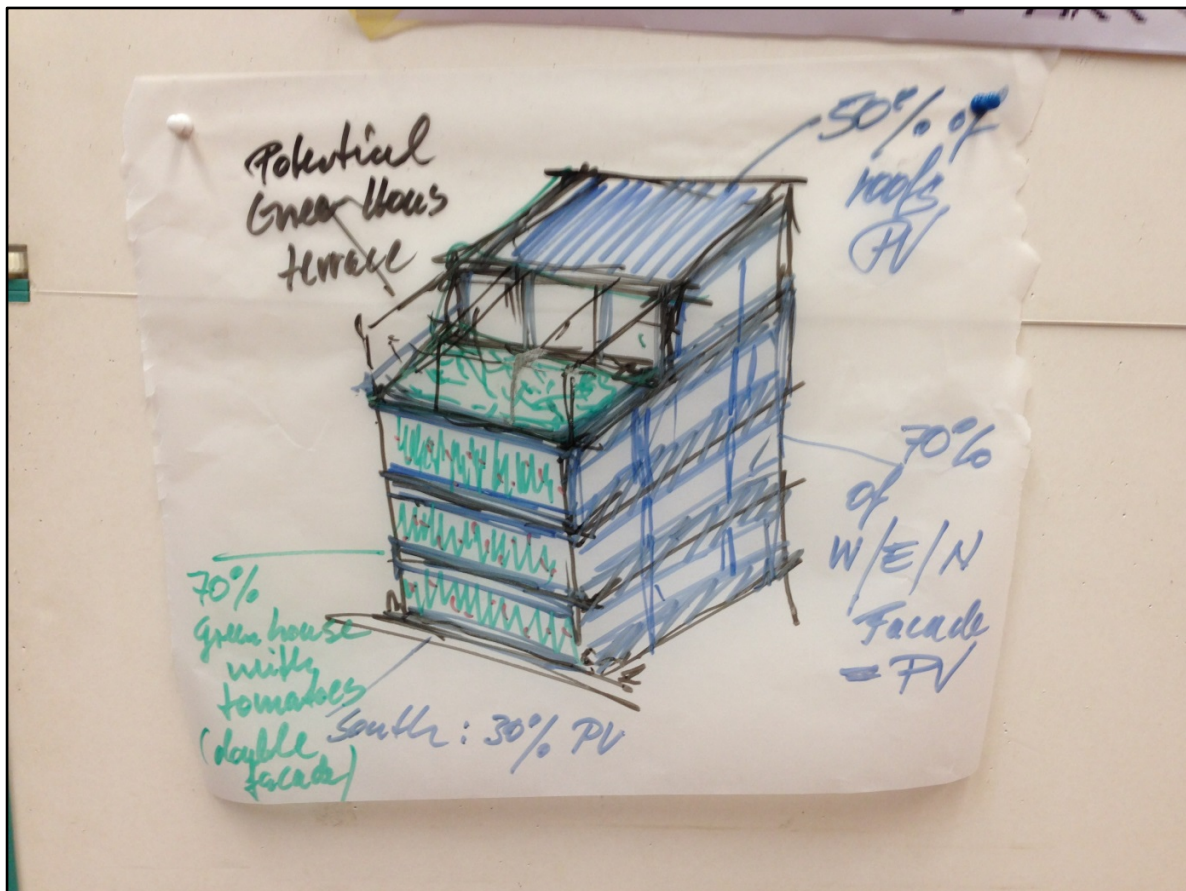 Potential
Green Hous
terrace
50% of
roofs
PV
70%
of
W/E/N
Facade
= PV
70%
Greenhouse
with
tomatoes
(double
facade)
South: 30% PV